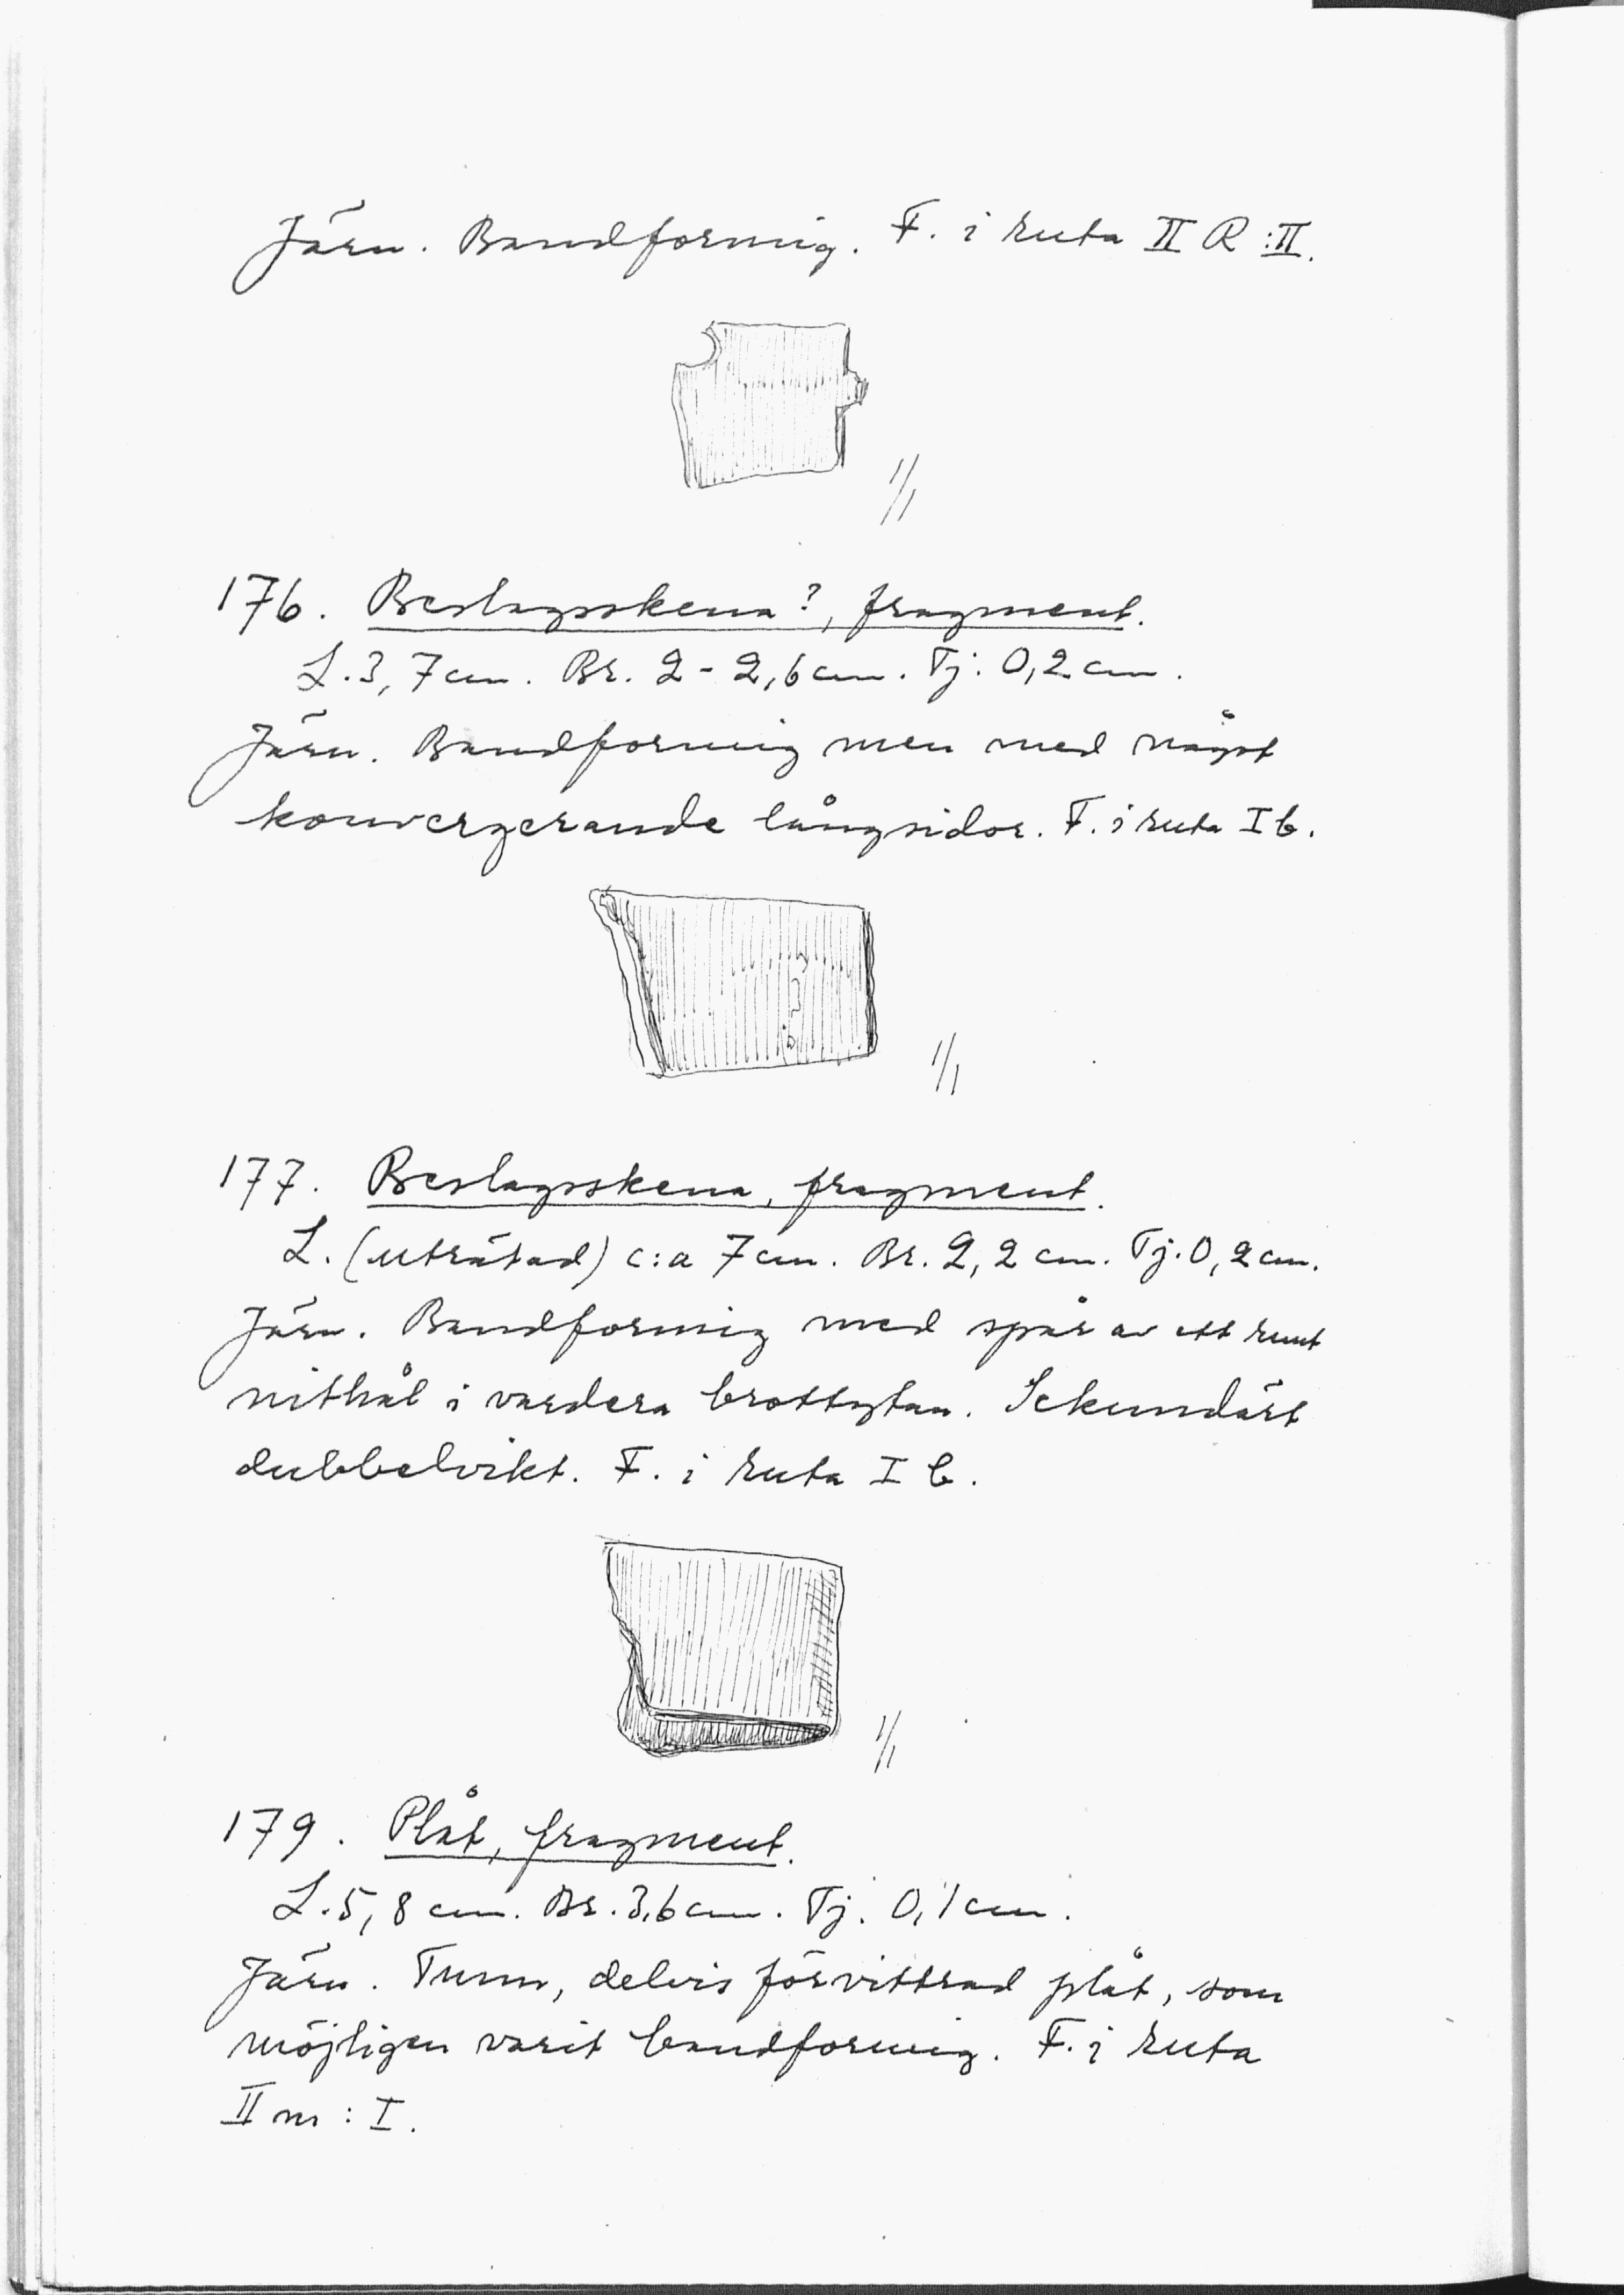 Järn. Bandformig. F. i ruta II R :II.
1/1
176. Beslagsskena?, fragment.
L. 3,7 cm. Br. 2 - 2,6 cm. Tj: 0,2 cm.
Järn. Bandformig men med något
konvergerande långsidor. F. i ruta I b.
1/1
177. Beslagsskena, fragment.
L. (uträtad) c:a 7 cm. Br. 2,2 cm. Tj. 0,2 cm.
Järn. Bandformig med spår av ett runt
nithål i vardera brottytan. Sekundärt
dubbelvikt. F. i ruta I b.
1/1
179. Plåt, fragment.
L. 5,8 cm. Br. 3,6 cm. Tj. 0,1 cm.
Järn. Tunn, delvis förvittrad plåt, som
möjligen varit bandformig. F. i ruta
II m : I.